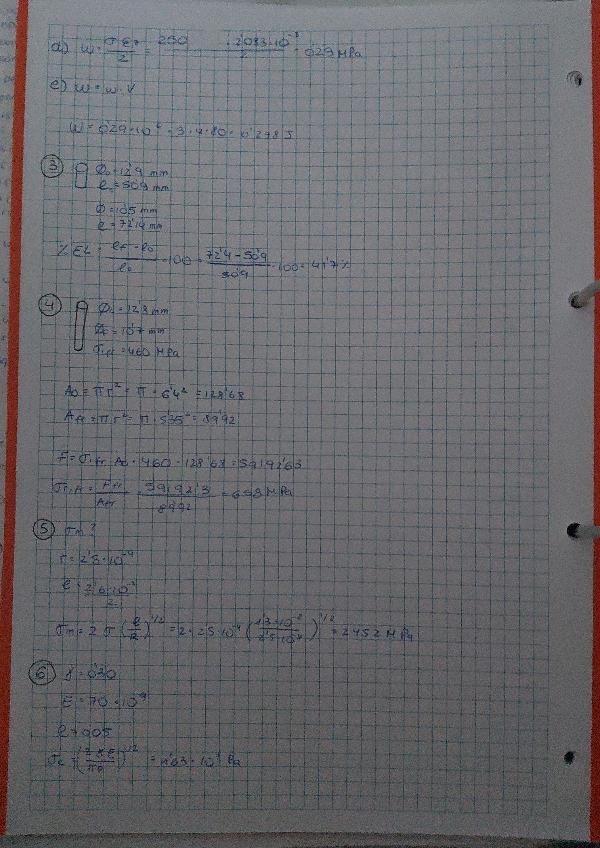 d) w = σ·εy / 2 = 250 · 2'083·10⁻³ / 2 = 0'29 MPa
e) W = w · V
W = 0'29·10⁶ · 3·4·80 = 0'278 J
③ Φ₀ = 12'9 mm
l₀ = 50'9 mm
Φ = 10'5 mm
l = 72'14 mm
% EL = lf - l₀ / l₀ · 100 = 72'4 - 50'9 / 50'9 · 100 = 41'7 %
④ Φ₀ = 12'8 mm
Φf = 10'7 mm
σfr = 460 MPa
A₀ = π r² = π · 6'4² = 128'68
Afr = π r² = π · 5'35² = 89'92
F = σfr A₀ = 460 · 128'68 = 59192'63
σr,fr = Ffr / Afr = 59192'3 / 89'92 = 658 MPa
⑤ σm?
r = 2'5·10⁻⁴
σm = 2 σ (l/r)^1/2 = 2 · 25·10⁻⁴ = 2452 MPa
⑥ γ = 0'30
E = 70·10⁻⁹
σc = (2γE / πa)^1/2 Pa